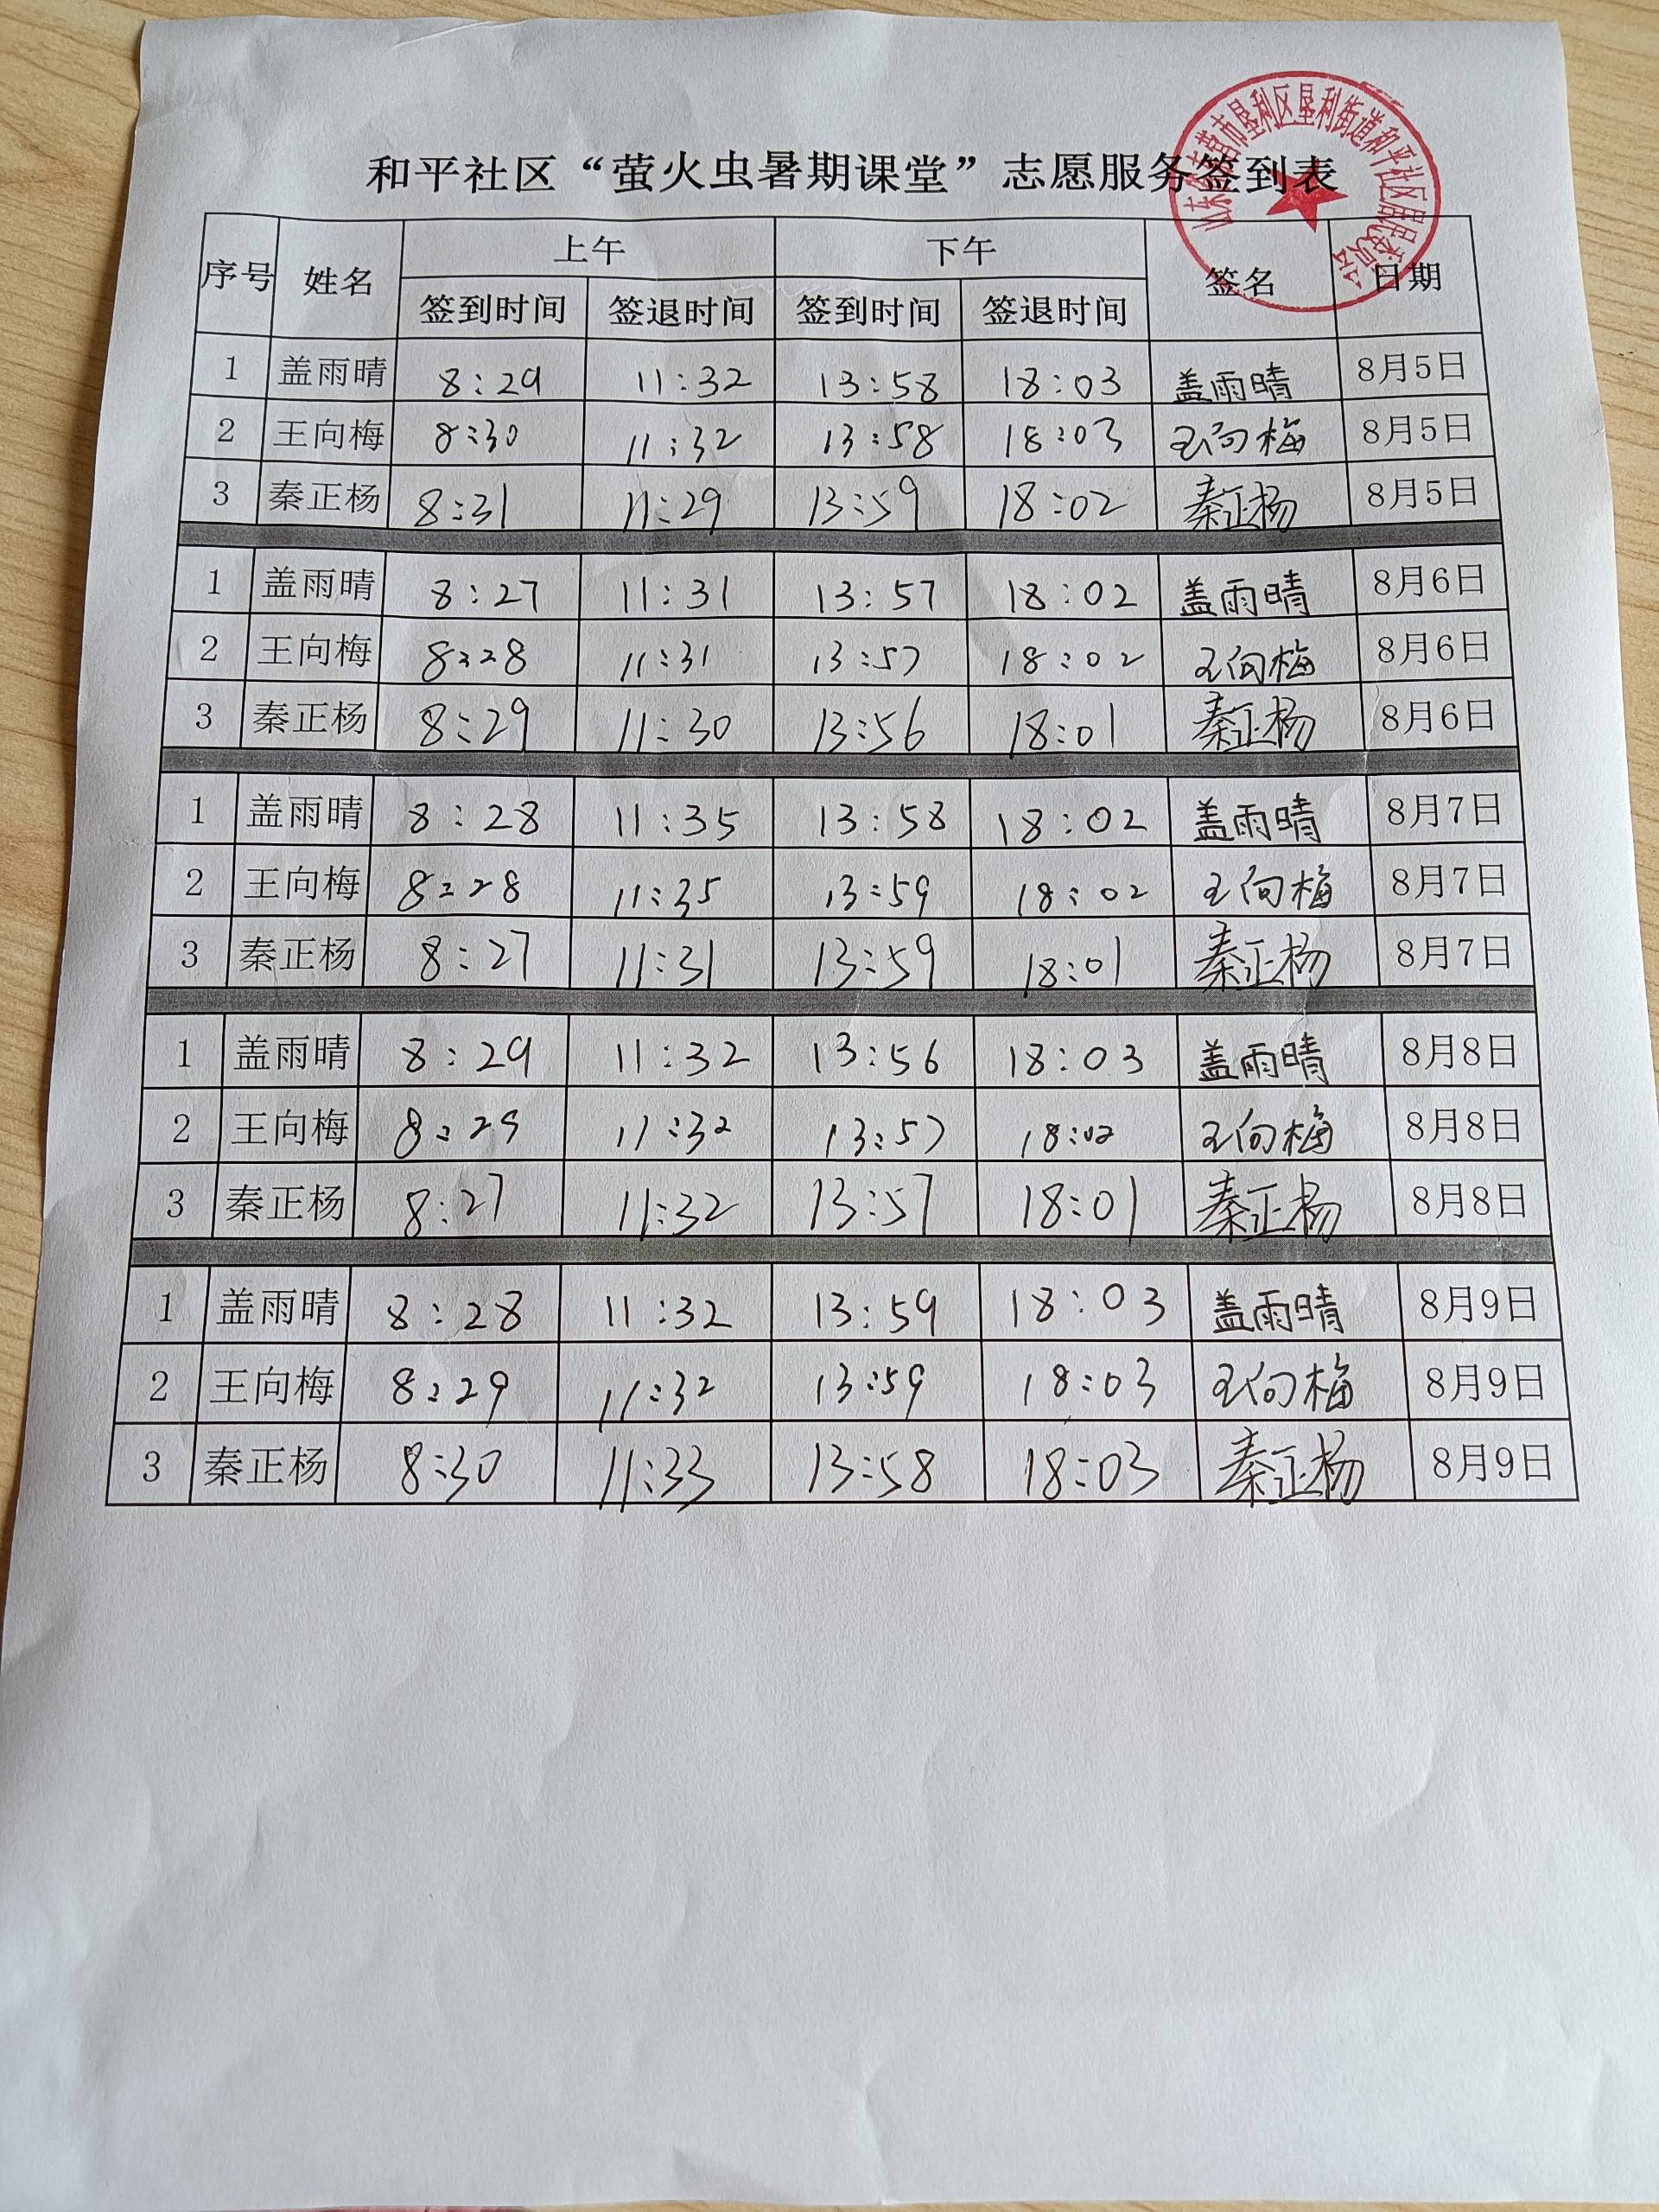 和平社区“萤火虫暑期课堂”志愿服务签到表
山东省东营市垦利区垦利街道和平社区居民委员会
序号 姓名 上午 下午 签名 日期
签到时间 签退时间 签到时间 签退时间
1 盖雨晴 8:29 11:32 13:58 18:03 盖雨晴 8月5日
2 王向梅 8:30 11:32 13:58 18:03 王向梅 8月5日
3 秦正杨 8:31 11:29 13:59 18:02 秦正杨 8月5日
1 盖雨晴 8:27 11:31 13:57 18:02 盖雨晴 8月6日
2 王向梅 8:28 11:31 13:57 18:02 王向梅 8月6日
3 秦正杨 8:29 11:30 13:56 18:01 秦正杨 8月6日
1 盖雨晴 8:28 11:35 13:58 18:02 盖雨晴 8月7日
2 王向梅 8:28 11:35 13:59 18:02 王向梅 8月7日
3 秦正杨 8:27 11:31 13:59 18:01 秦正杨 8月7日
1 盖雨晴 8:29 11:32 13:56 18:03 盖雨晴 8月8日
2 王向梅 8:29 11:32 13:57 18:02 王向梅 8月8日
3 秦正杨 8:27 11:32 13:57 18:01 秦正杨 8月8日
1 盖雨晴 8:28 11:32 13:59 18:03 盖雨晴 8月9日
2 王向梅 8:29 11:32 13:59 18:03 王向梅 8月9日
3 秦正杨 8:30 11:33 13:58 18:03 秦正杨 8月9日